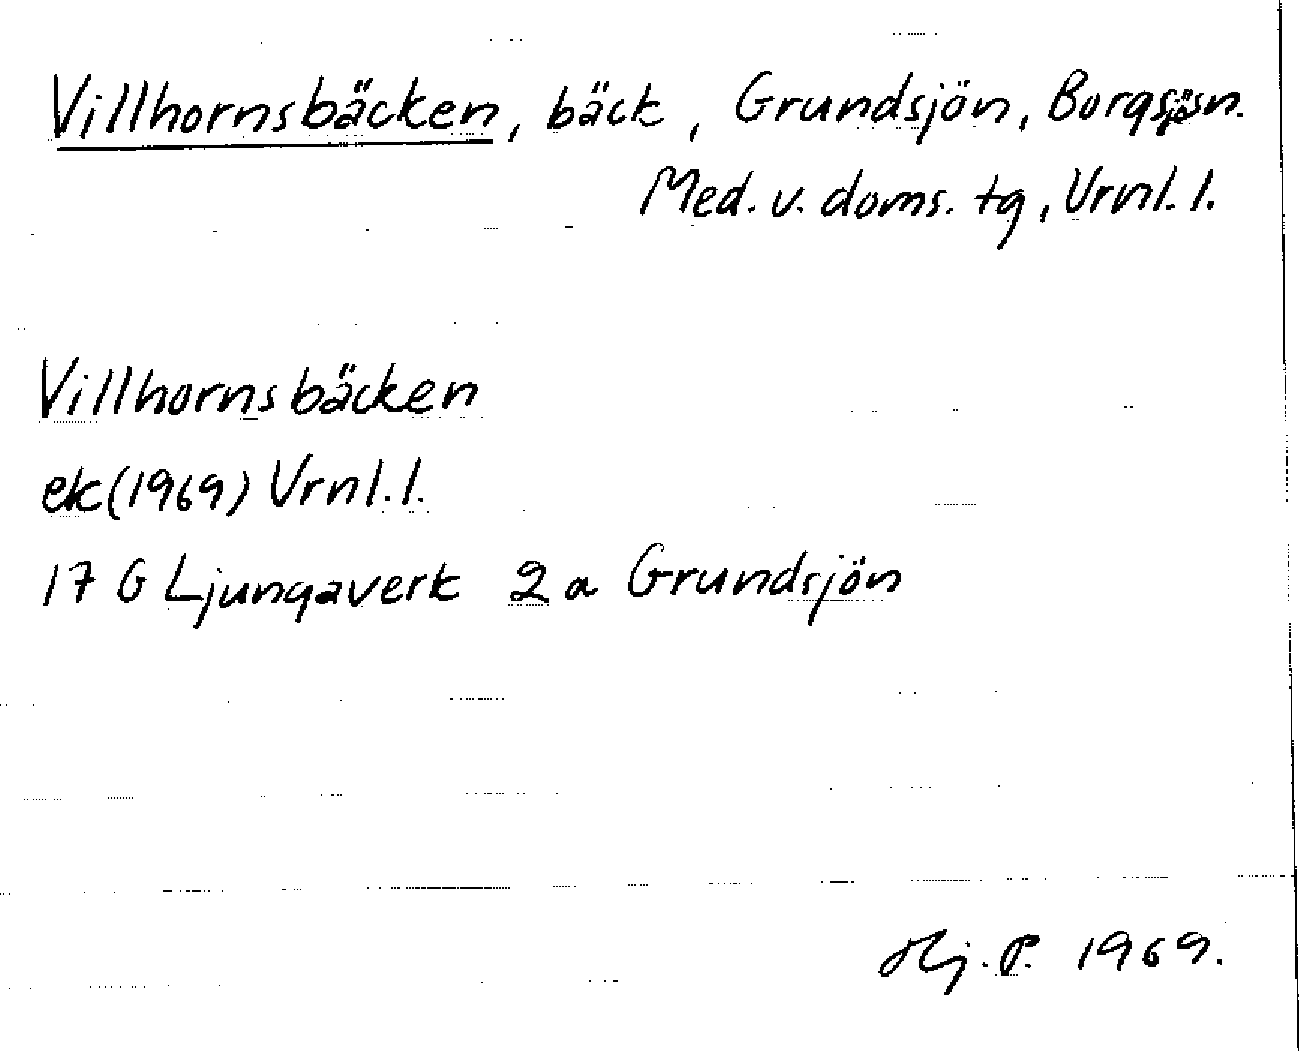 Villhornsbäcken, bäck, Grundsjön, Borgsjösn.
Med. v. doms. tg, Vrnl. l.
Villhornsbäcken
ek (1969) Vrnl. l.
17 G Ljungaverk 2 a Grundsjön
Hj. P. 1969.